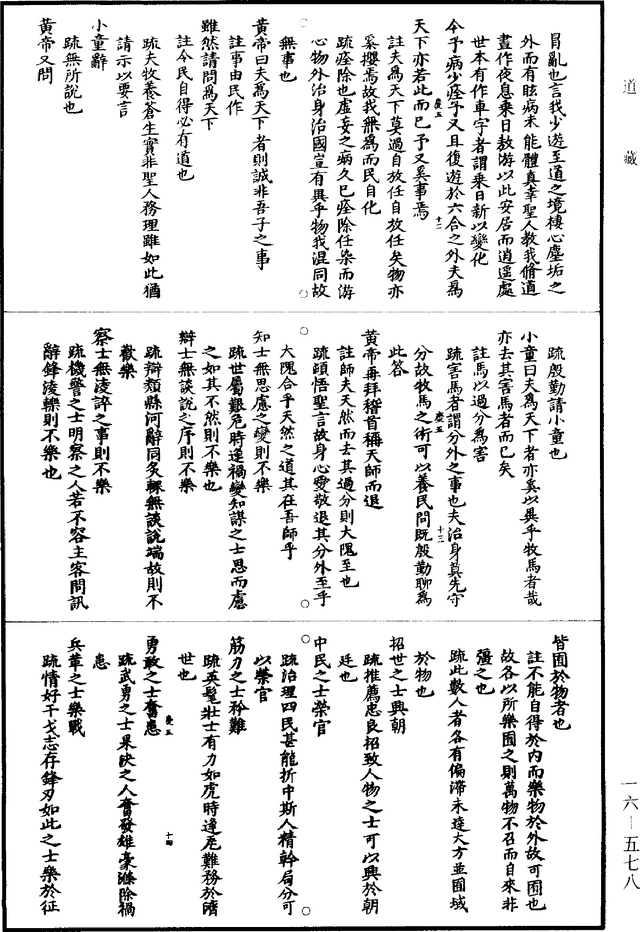 道藏
冐亂也言我少遊至道之境棲心塵垢之
外而有眩病未能體真幸聖人教我脩道
晝作夜息乗日遨游以此安居而逍遥處
世本有作車字者謂乗日新以變化
今予病少痊予又且復遊於六合之外夫爲
天下亦若此而已予又奚事焉
註夫爲天下莫過自放任自放任矣物亦
奚攖焉故我無爲而民自化
疏痊除也虛妄之病久已痊除任染而游
心物外治身治國豈有異乎物我混同故
無事也
黄帝曰夫爲天下者則誠非吾子之事
註事由民作
雖然請問爲天下
註今民自得必有道也
疏夫牧養蒼生實非聖人務理雖如此猶
請示以要言
小童辭
疏無所說也
黄帝又問
疏殷勤請小童也
小童曰夫爲天下者亦奚以異乎牧馬者哉
亦去其害馬者而已矣
註馬以過分爲害
疏害馬者謂分外之事也夫治身莫先守
分故牧馬之術可以養民問既殷勤聊爲
此答
黄帝再拜稽首稱天師而退
註師夫天然而去其過分則大隗至也
疏頤悟聖言故身心愛敬退其分外至乎
大隗合乎天然之道其在吾師乎
知士無思慮之變則不樂
疏世屬艱危時逢禍變知謀之士思而慮
之如其不然則不樂也
辯士無談說之序則不樂
疏辯類縣河辭同炙輠無談說端故則不
歡樂
察士無淩誶之事則不樂
疏機警之士明察之人若不容主客問訊
辭鋒淩轢則不樂也
皆囿於物者也
註不能自得於内而樂物於外故可囿也
故各以所樂囿之則萬物不召而自來非
彊之也
疏此數人者各有偏滯未達大方並囿域
於物也
招世之士興朝
疏推薦忠良招致人物之士可以興於朝
廷也
中民之士榮官
疏治理四民甚能折中斯人精幹局分可
以榮官
筋力之士矜難
疏英髦壯士有力如虎時逢厄難務於濟
世也
勇敢之士奮患
疏武勇之士果決之人奮發雄豪滌除禍
患
兵革之士樂戰
疏情好干戈志存鋒刃如此之士樂於征
慶五
十二
慶五
十三
慶五
十四
一六—五七八